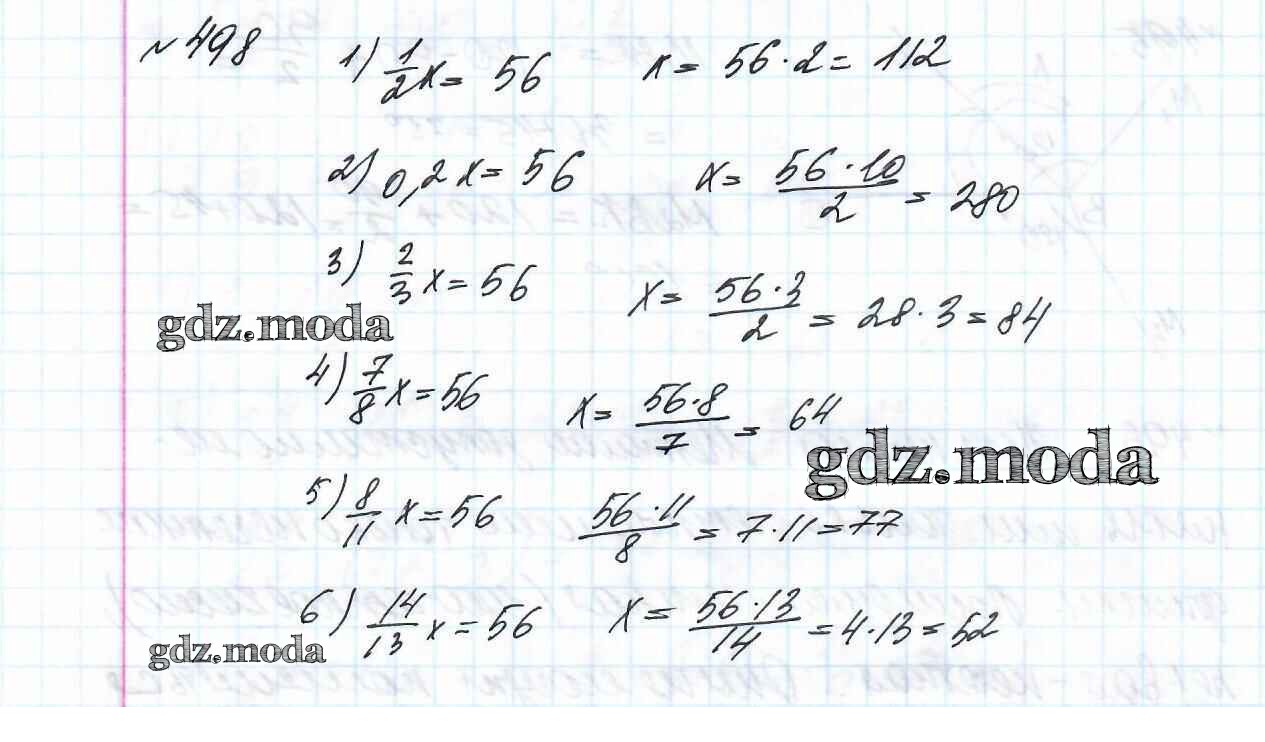 № 498 1) 1/2 x = 56 x = 56 · 2 = 112
2) 0,2 x = 56 x = 56 · 10 / 2 = 280
3) 2/3 x = 56 x = 56 · 3 / 2 = 28 · 3 = 84
gdz.moda
4) 7/8 x = 56 x = 56 · 8 / 7 = 64
gdz.moda
5) 8/11 x = 56 56 · 11 / 8 = 7 · 11 = 77
6) 14/13 x = 56 x = 56 · 13 / 14 = 4 · 13 = 52
gdz.moda